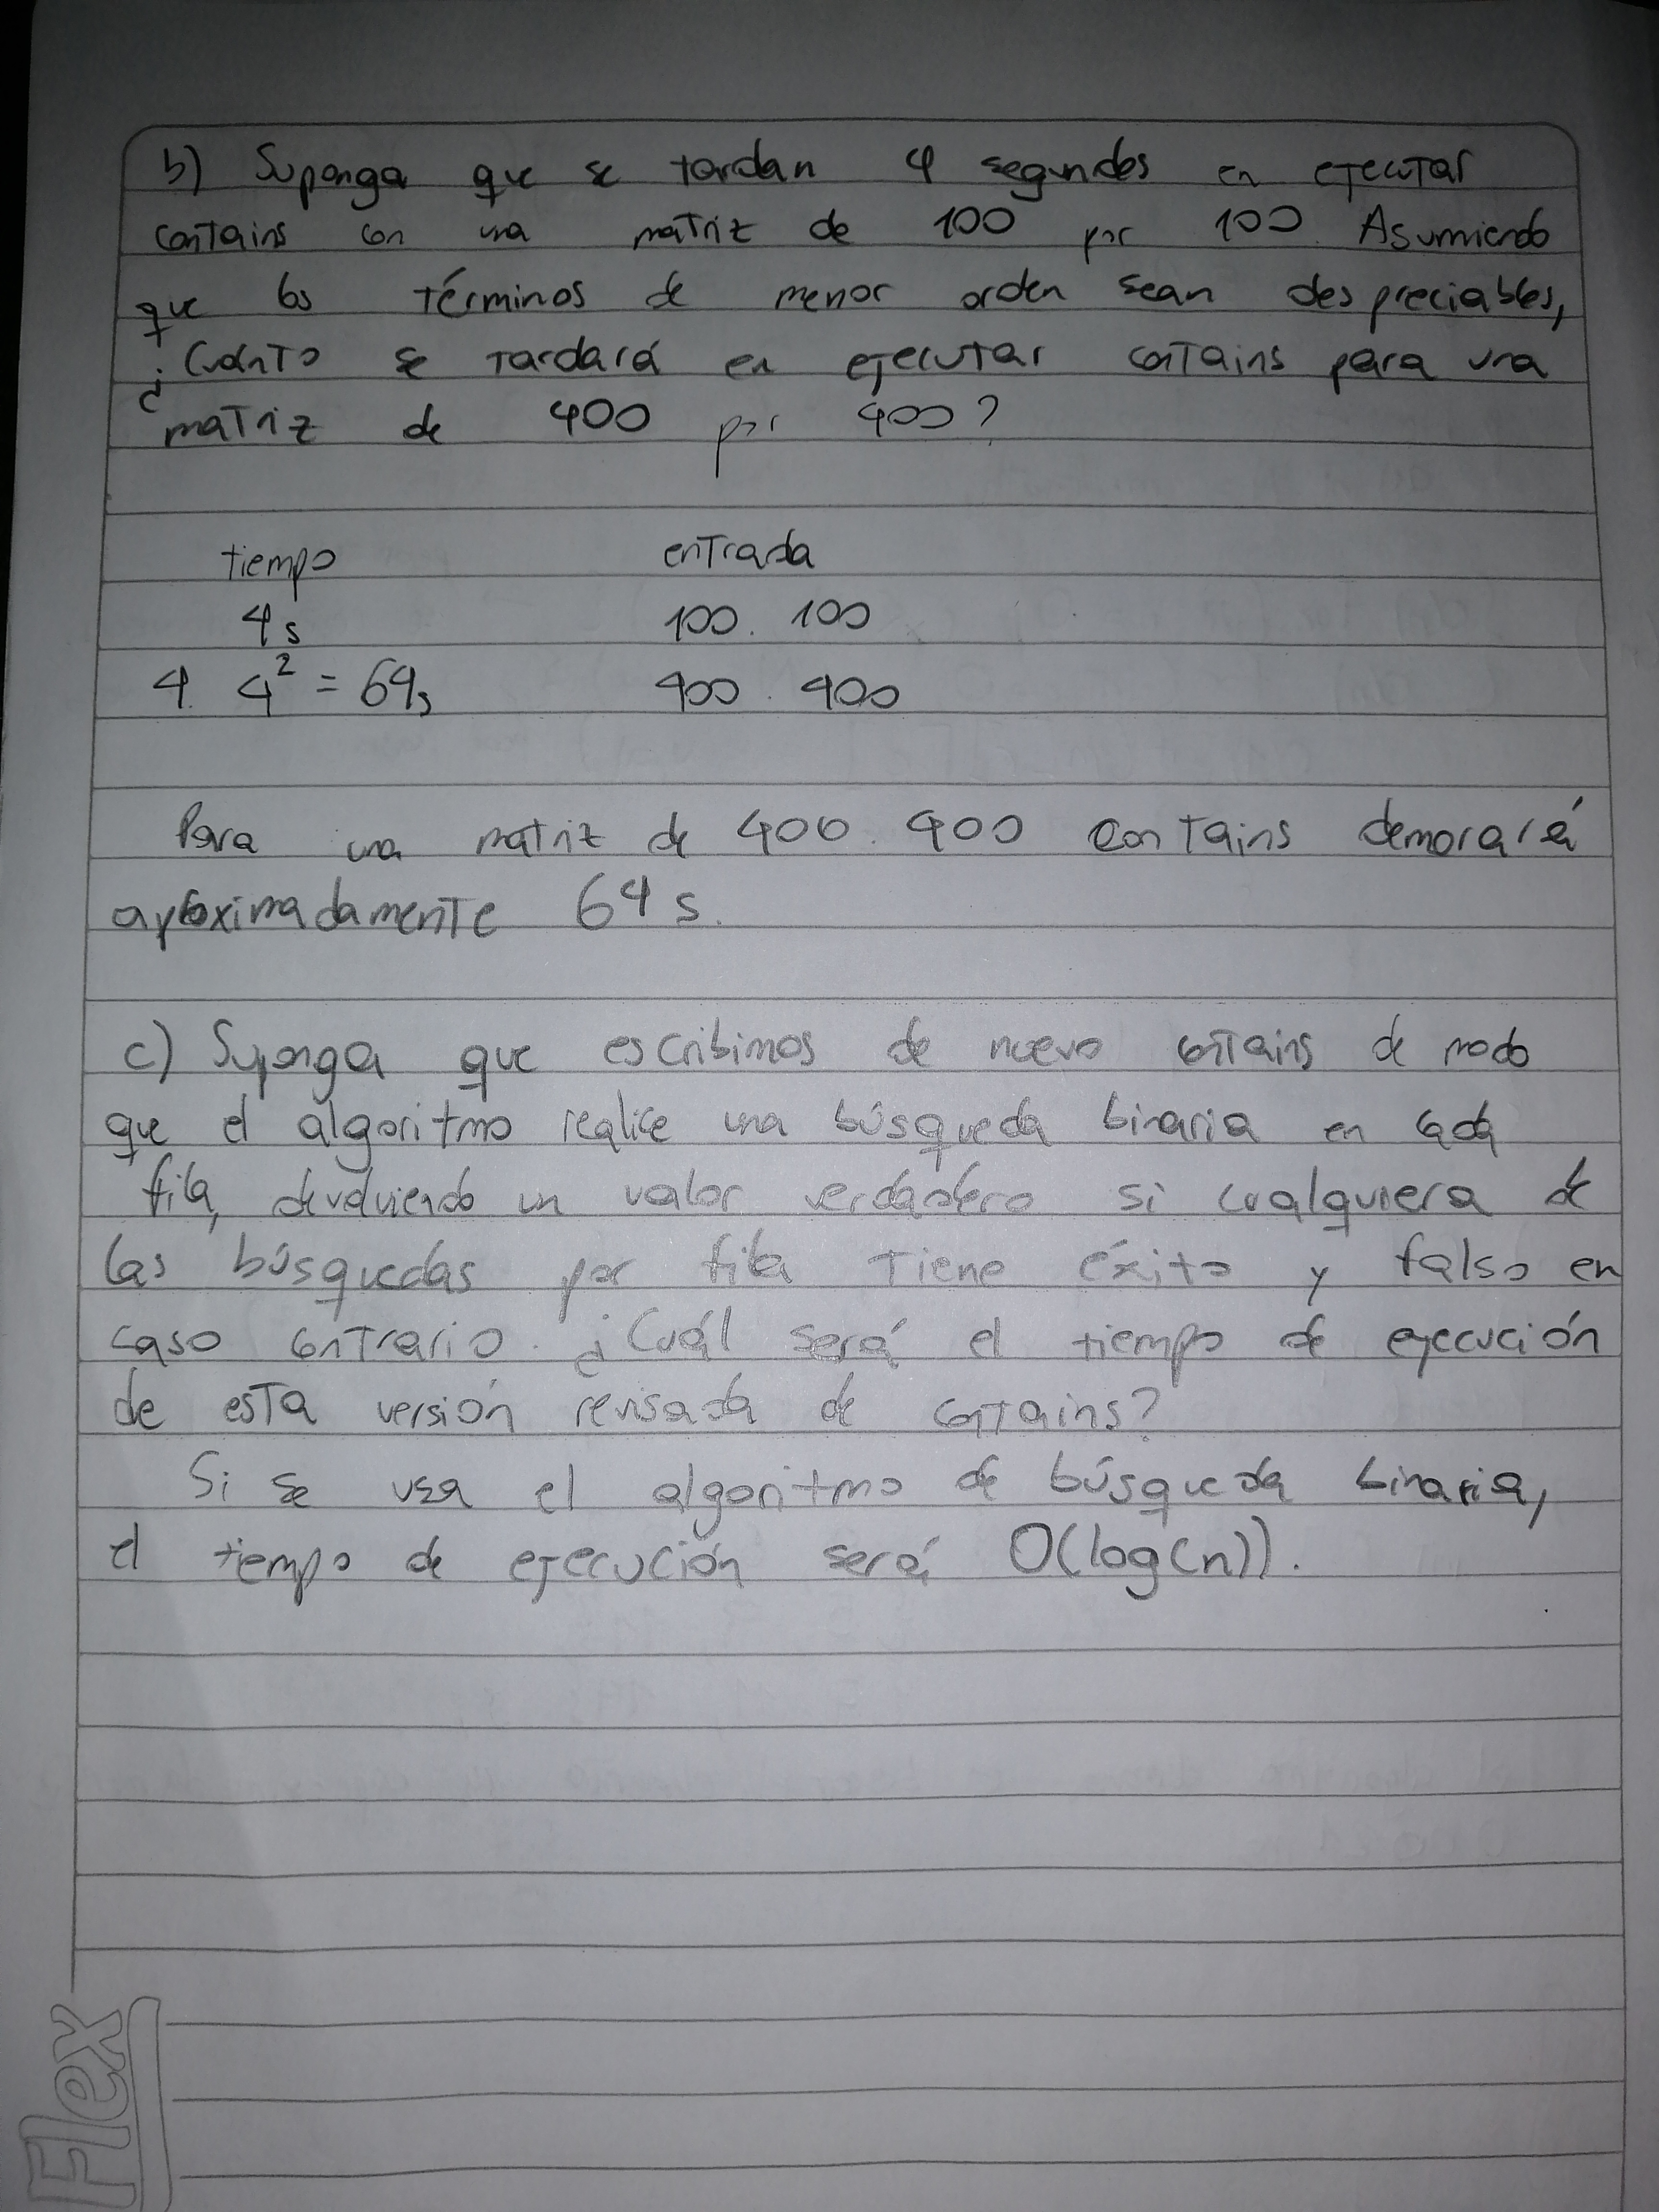 b) Suponga que se tardan 4 segundos en ejecutar
contains con una matriz de 100 por 100. Asumiendo
que los términos de menor orden sean despreciables,
¿Cuánto se tardará en ejecutar contains para una
matriz de 400 por 400?
tiempo entrada
4s 100 . 100
4 . 4² = 64s 400 . 400
Para una matriz de 400 . 400 contains demorará
aproximadamente 64 s.
c) Suponga que escribimos de nuevo contains de modo
que el algoritmo realice una búsqueda binaria en cada
fila, devolviendo un valor verdadero si cualquiera de
las búsquedas por fila tiene éxito y falso en
caso contrario. ¿Cuál será el tiempo de ejecución
de esta versión revisada de contains?
Si se usa el algoritmo de búsqueda binaria,
el tiempo de ejecución será O(log(n)).
Flex